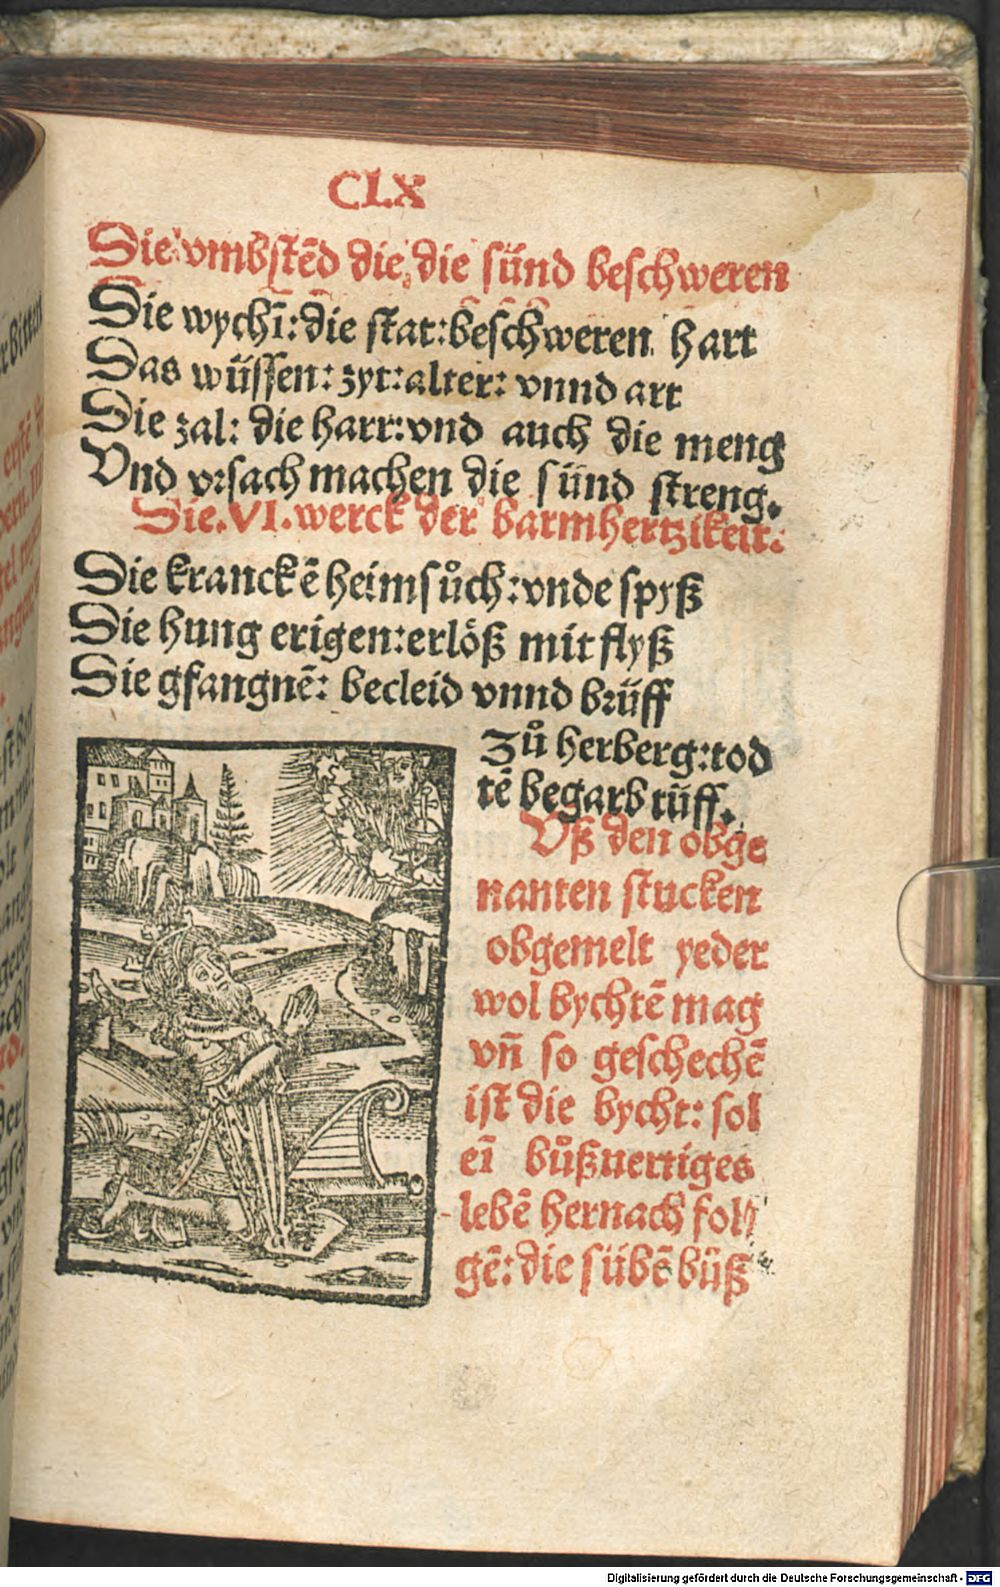 CLX
Die vmbstēd die, die sünd beschweren
Die wychī: die stat: beschweren hart
Das wüssen: zyt: alter: vnnd art
Die zal: die harr: vnd auch die meng
Vnd vrsach machen die sünd streng.
Die .VI. werck der barmhertzikeit.
Die kranckē heimsůch: vnde spyß
Die hung erigen: erlöß mit flyß
Die gfangnē: becleid vnnd brüff
Zů herberg: tod
tē begarb rüff.
Vß den obge
nanten stucken
obgemelt yeder
wol bychtē mag
vn̄ so geschechē
ist die bycht: sol
eī bůßuertiges
lebē hernach fol
gē: die sübē bůß
Digitalisierung gefördert durch die Deutsche Forschungsgemeinschaft - DFG